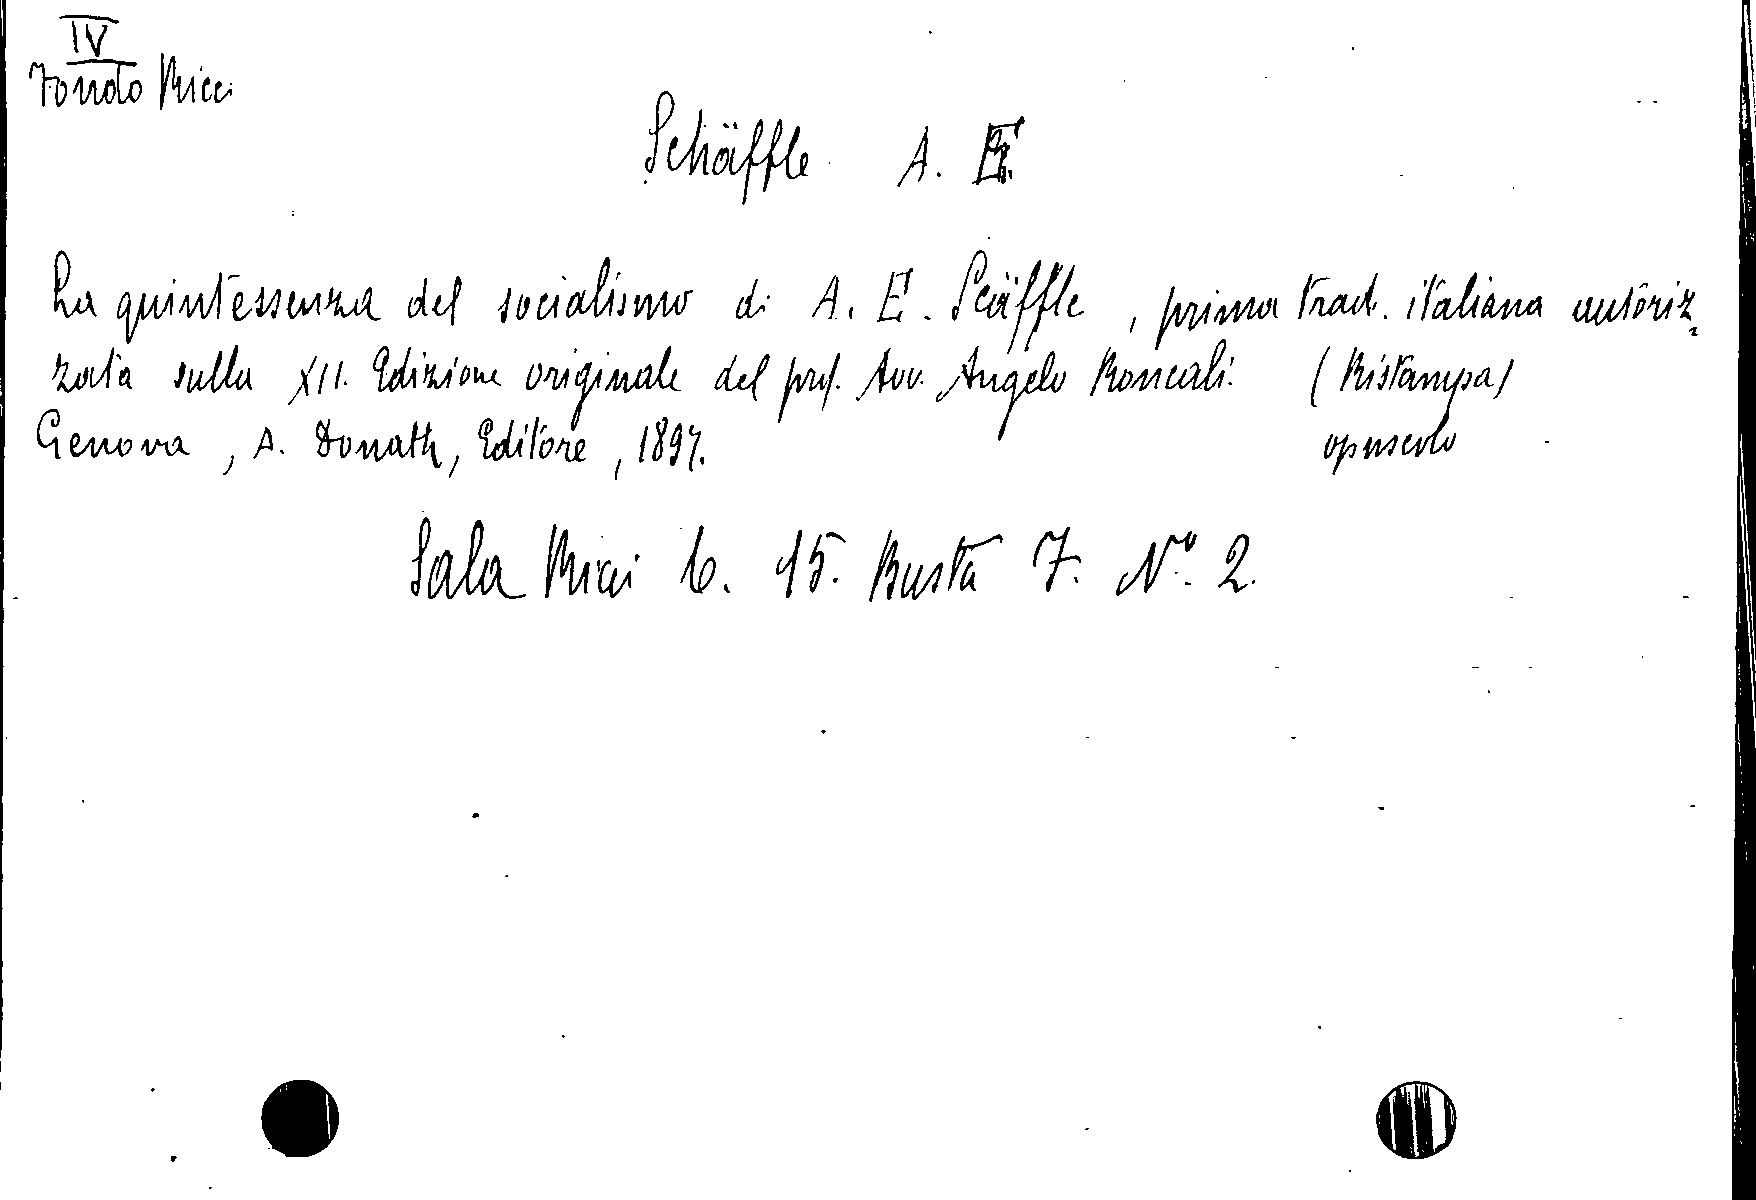 IV
Fondo Ricci
Schäffle A. E.
La quintessenza del socialismo di A. E. Scäffle, prima trad. italiana autoriz=
zata sulla XII. Edizione originale del prof. Avv. Angelo Roncali. (Ristampa)
Genova, A. Donath, Editore, 1897. opuscolo
Sala Ricci C. 15. Busta 7. N° 2.